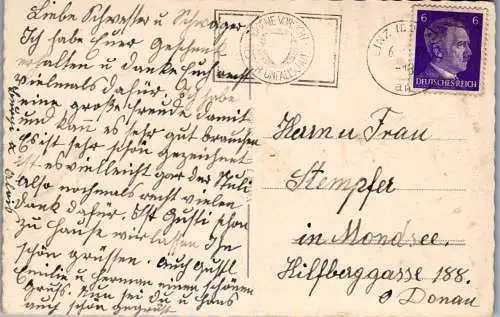 Liebe Schwester u Schwager
Ich habe Euer Geschenk
erhalten u danke Euch recht
vielmals dafür. Ich habe
eine große Freude damit
und kann es sehr gut brauchen
Es ist sehr schön gezeichnet
ist es vielleicht gar der Juli
Also nochmals recht vielen
Dank dafür. Ist Gusti schon
zu Hause wir lassen Ihn
schön grüssen. Auch Gustl
Emilie u Herman einen schönen
Gruß. Nun sei du u Hans
auch schön gegrüßt
6 6
DEUTSCHES REICH
Herrn u Frau
Stempfer
in Mondsee
Hilfberggasse 188.
o Donau